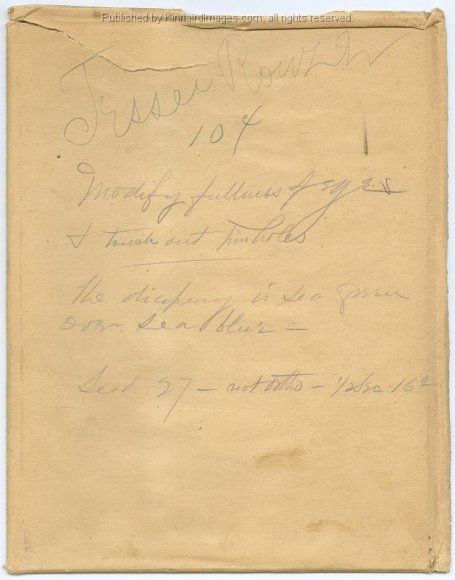 Published by Kinnardimages.com, all rights reserved.
104
Modify fullness of eyes
& touch out pinholes
The drapery is sea green
over sea blue –
Seed 27 – not ortho – 1/2 sec 16